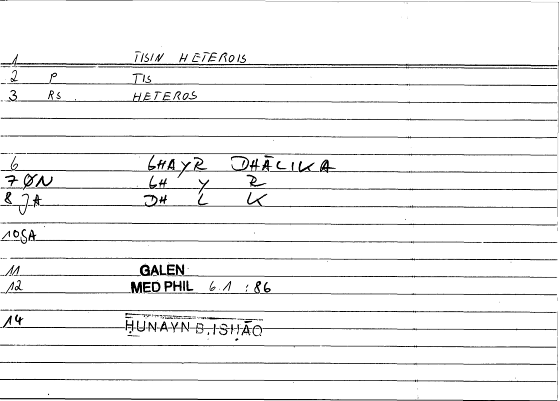 1 TISIN HETEROIS
2 P TIS
3 RS. HETEROS
6 GHAYR DHĀLIKA
7 ØN GH Y R
8 JA DH L K
10 SA
11 GALEN
12 MED PHIL 6.1 :86
14 ḤUNAYN B. ISḤĀQ